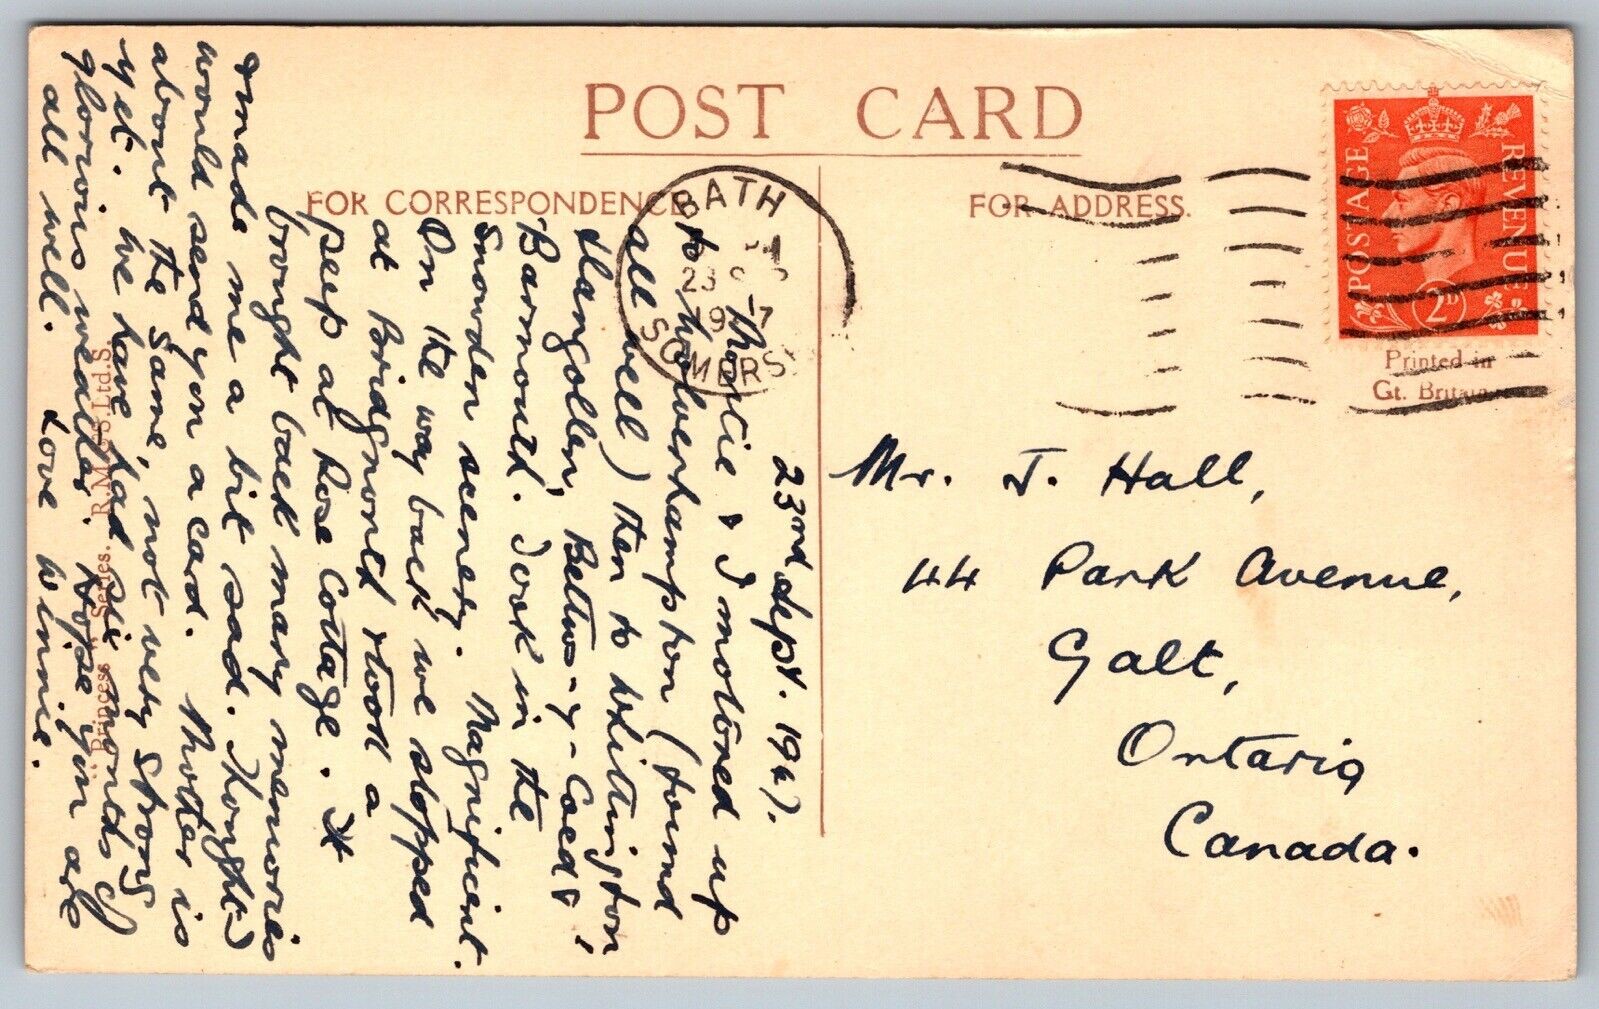 POST CARD
FOR CORRESPONDENCE
FOR ADDRESS.
BATH
23
SOMERS
POSTAGE
REVENUE
2D
Printed in
Gt. Britain
Mr. J. Hall,
44 Park Avenue,
Galt,
Ontario
Canada.
23rd Sept. 1947.
& I motored up
to Wolverhampton (found
all well) then to Whittington,
Llangollen, Bettws-y-Coed &
Barmouth. Took in the
Snowden scenery. Magnificent.
On the way back we stopped
at Bridgnorth & took a
peep at Rose Cottage. It
brought back many memories
& made me a bit sad. Thought I
would send you a card. Mother is
about the same, not very strong
yet. We have had six months of
glorious weather. Hope you are
all well. Love Winnie.
Princess Series. R.M.&S.Ltd.S.